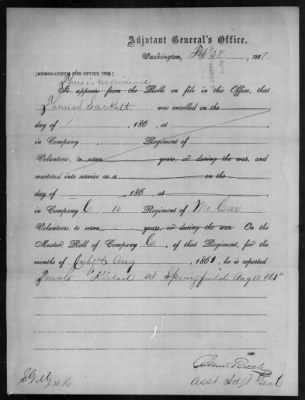 Adjutant General's Office,
Washington, Feb 28, 186
[MEMORANDUM FOR OFFICE USE.]
There is no evidence
It appears from the Roll on file in this Office, that
was enrolled on the
day of , 186
in Company Regiment of
Volunteers, to serve years, or during the war, and
mustered into service as a on the
day of , 186
in Company Regiment of Cav
Volunteers, to serve years, or during the war. On the
Muster Roll of Company of that Regiment, for the
months of July & Aug 1861, he is reported
Private "Killed at Springfield Aug 10 1861"
Asst Adjt Genl